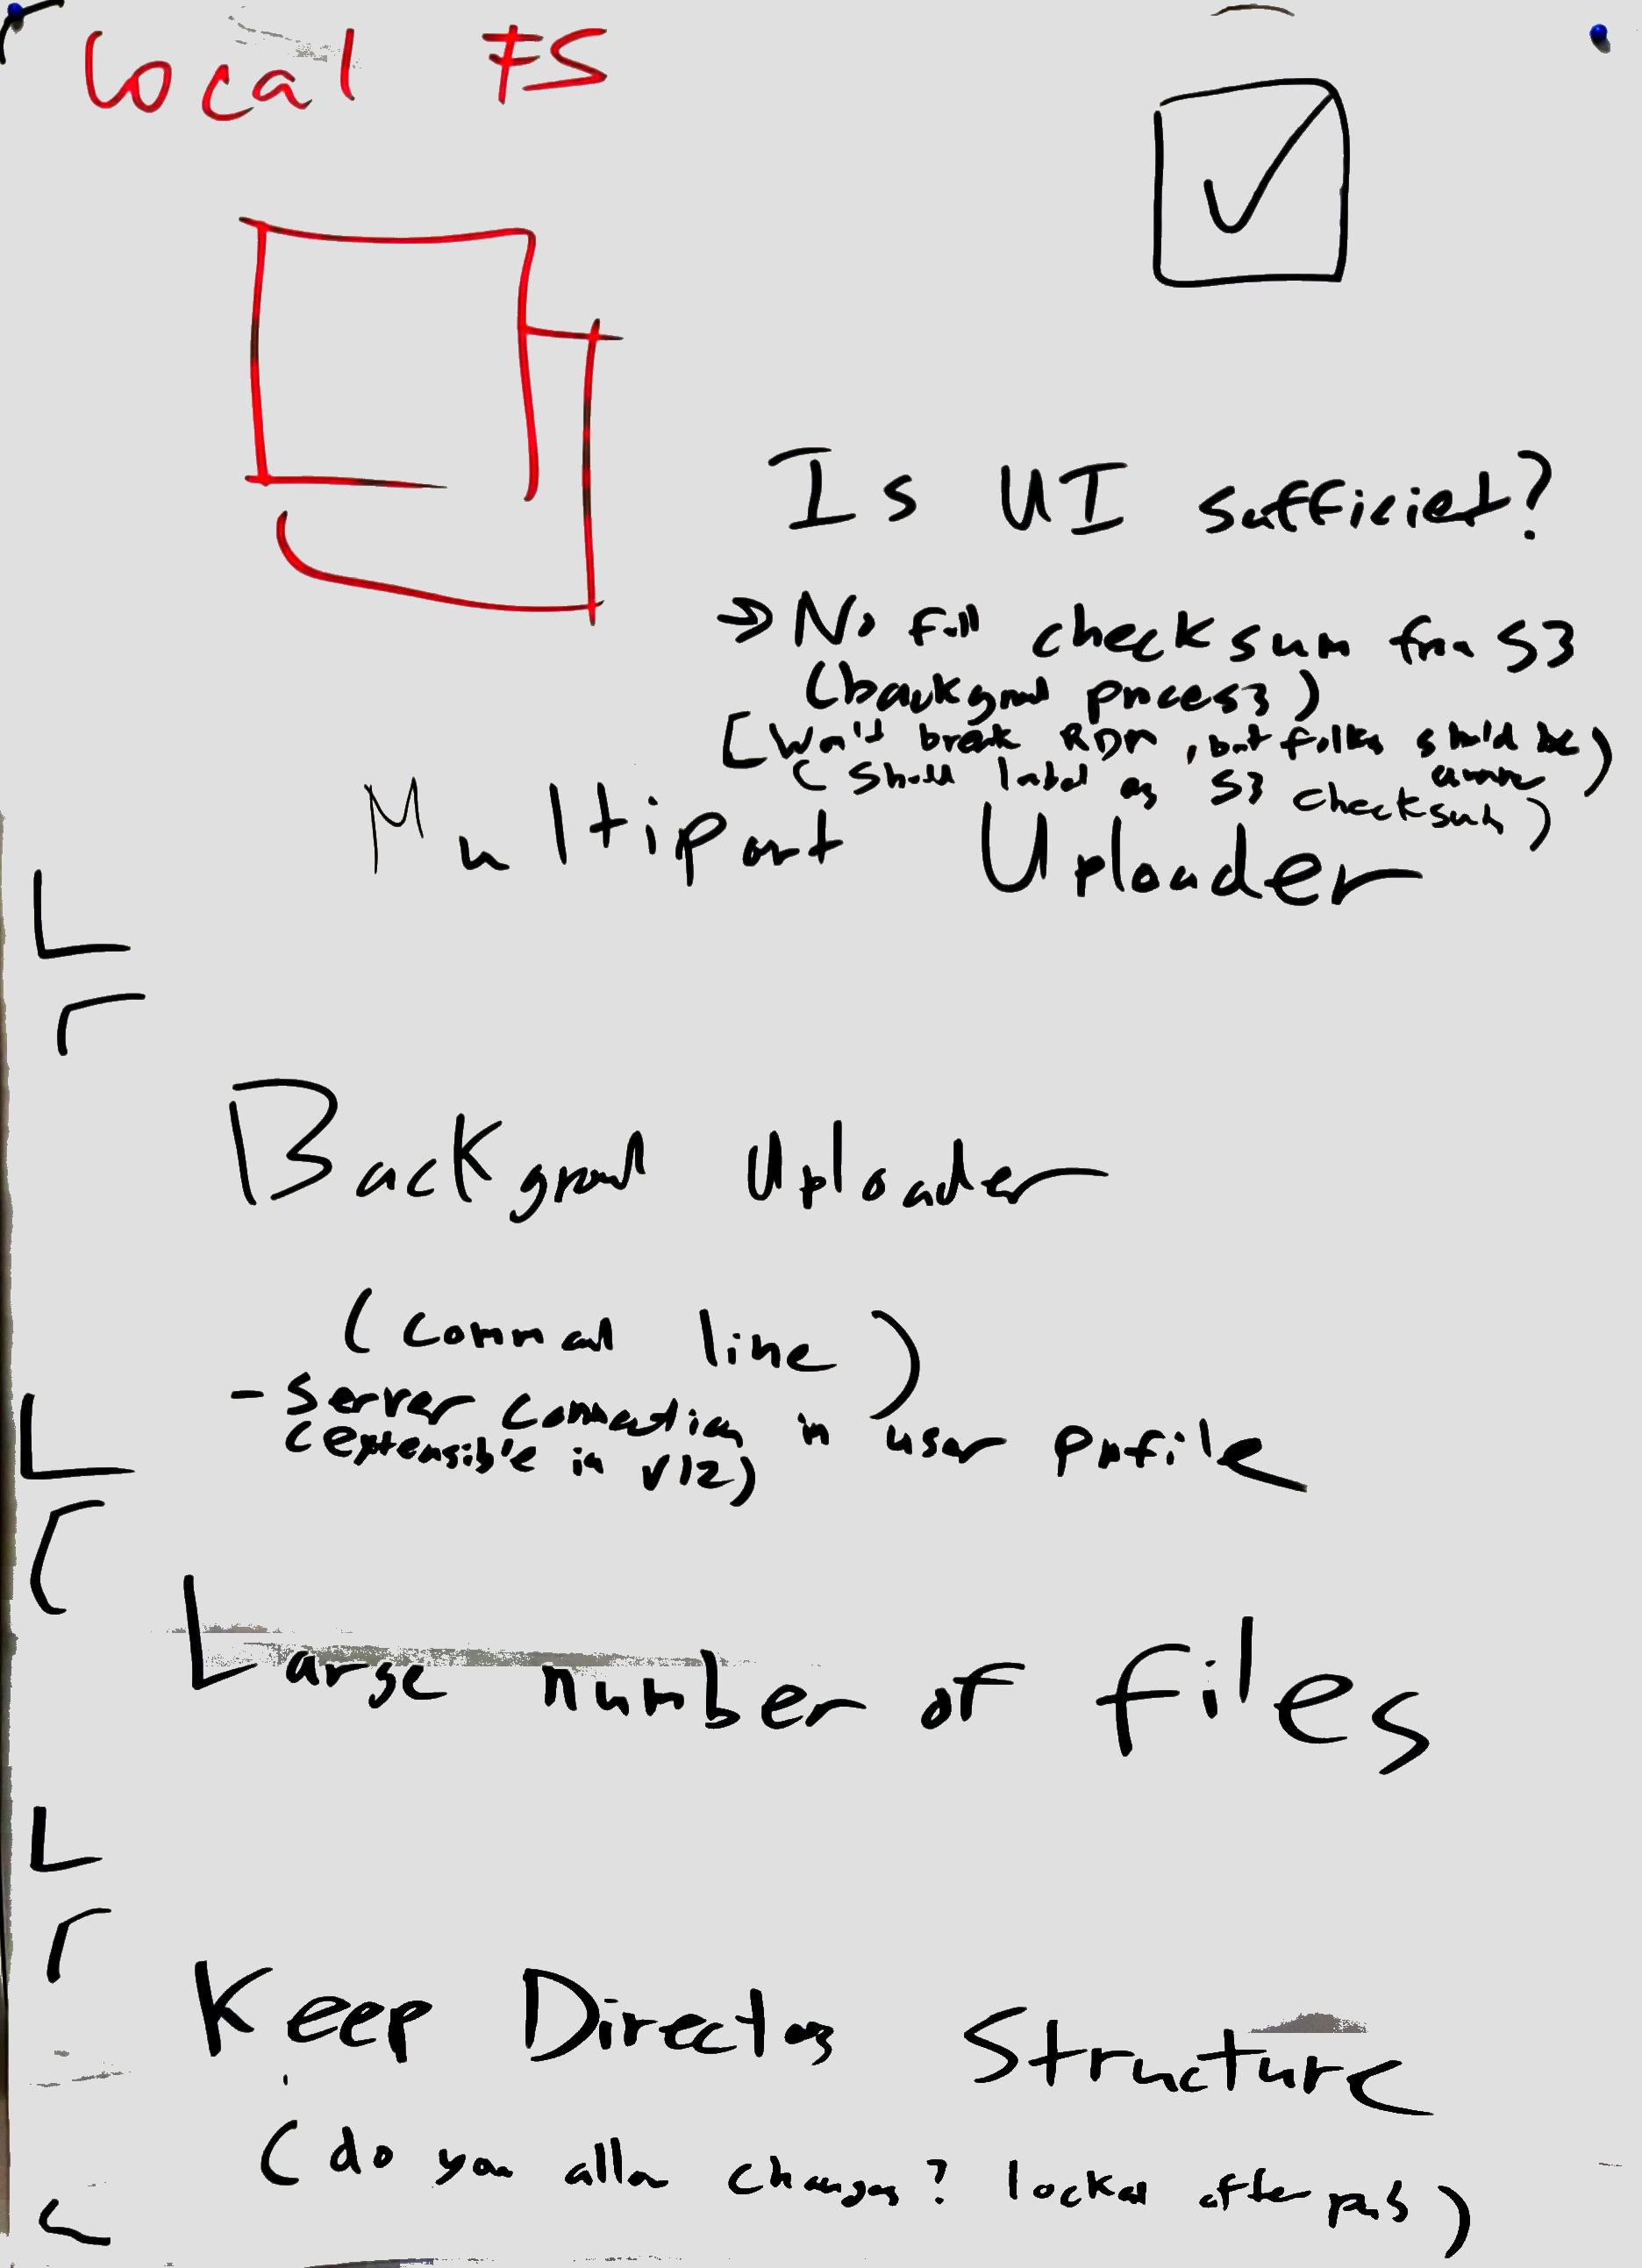 Local FS
Is UI sufficiet?
⇒ No full checksum from S3
(background process)
[Won't break RDM, but folks should be aware)
(Should label as S3 checksum)
Multipart Uploader
Background Uploader
(command line)
- server connection in user profile
(extensible in v12)
Large number of files
Keep Directory Structure
(do you allow changes? locked after pub)